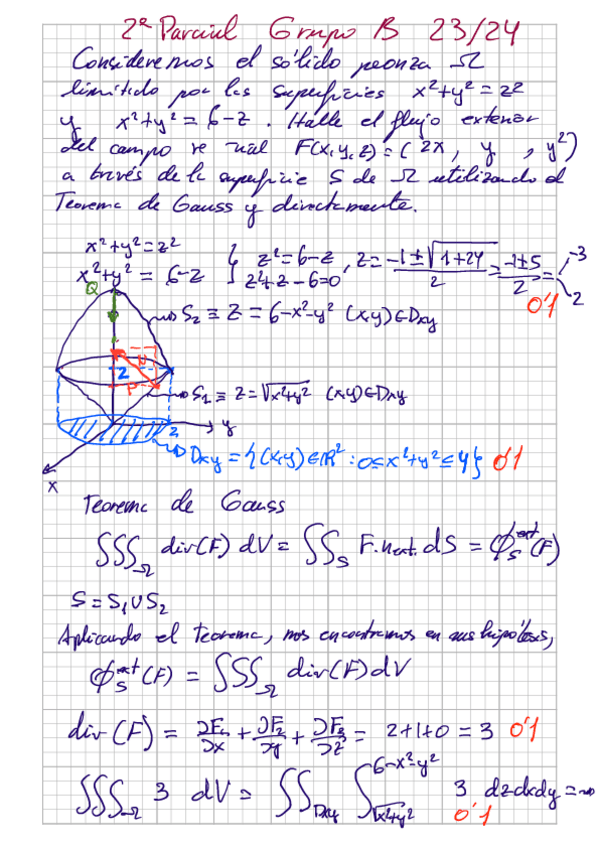 2º Parcial Grupo B 23/24
Consideremos el sólido peonza Ω
limitido por las superficies x²+y² = z²
y x²+y² = 6-z. Halle el flujo exterior
del campo ve rial F(x,y,z)=(2x, y, y²)
a través de la superficie S de Ω utilizando el
Teorema de Gauss y directamente.
x²+y²=z²
x²+y² = 6-z { z²=6-z z²+z-6=0 , z= -1±√1+24 / 2 = -1±5 / 2 = -3 2
0'1
Q
S₂ ≡ z = 6-x²-y² (x,y)∈Dxy
2
P
S₁ ≡ z = √x²+y² (x,y)∈Dxy
2 y
Dxy = {(x,y)∈ℝ² : 0≤x²+y²≤4} 0'1
x
Teorema de Gauss
∭Ω div(F) dV = ∬S F.next. dS = ϕS^ext(F)
S = S₁∪S₂
Aplicando el teorema, nos encontramos en sus hipótesis,
ϕS^ext(F) = ∭Ω div(F)dV
div(F) = ∂F₁/∂x + ∂F₂/∂y + ∂F₃/∂z = 2+1+0 = 3 0'1
∭Ω 3 dV = ∬Dxy ∫√x²+y²^6-x²-y² 3 dz dx dy = ⇝
0'1